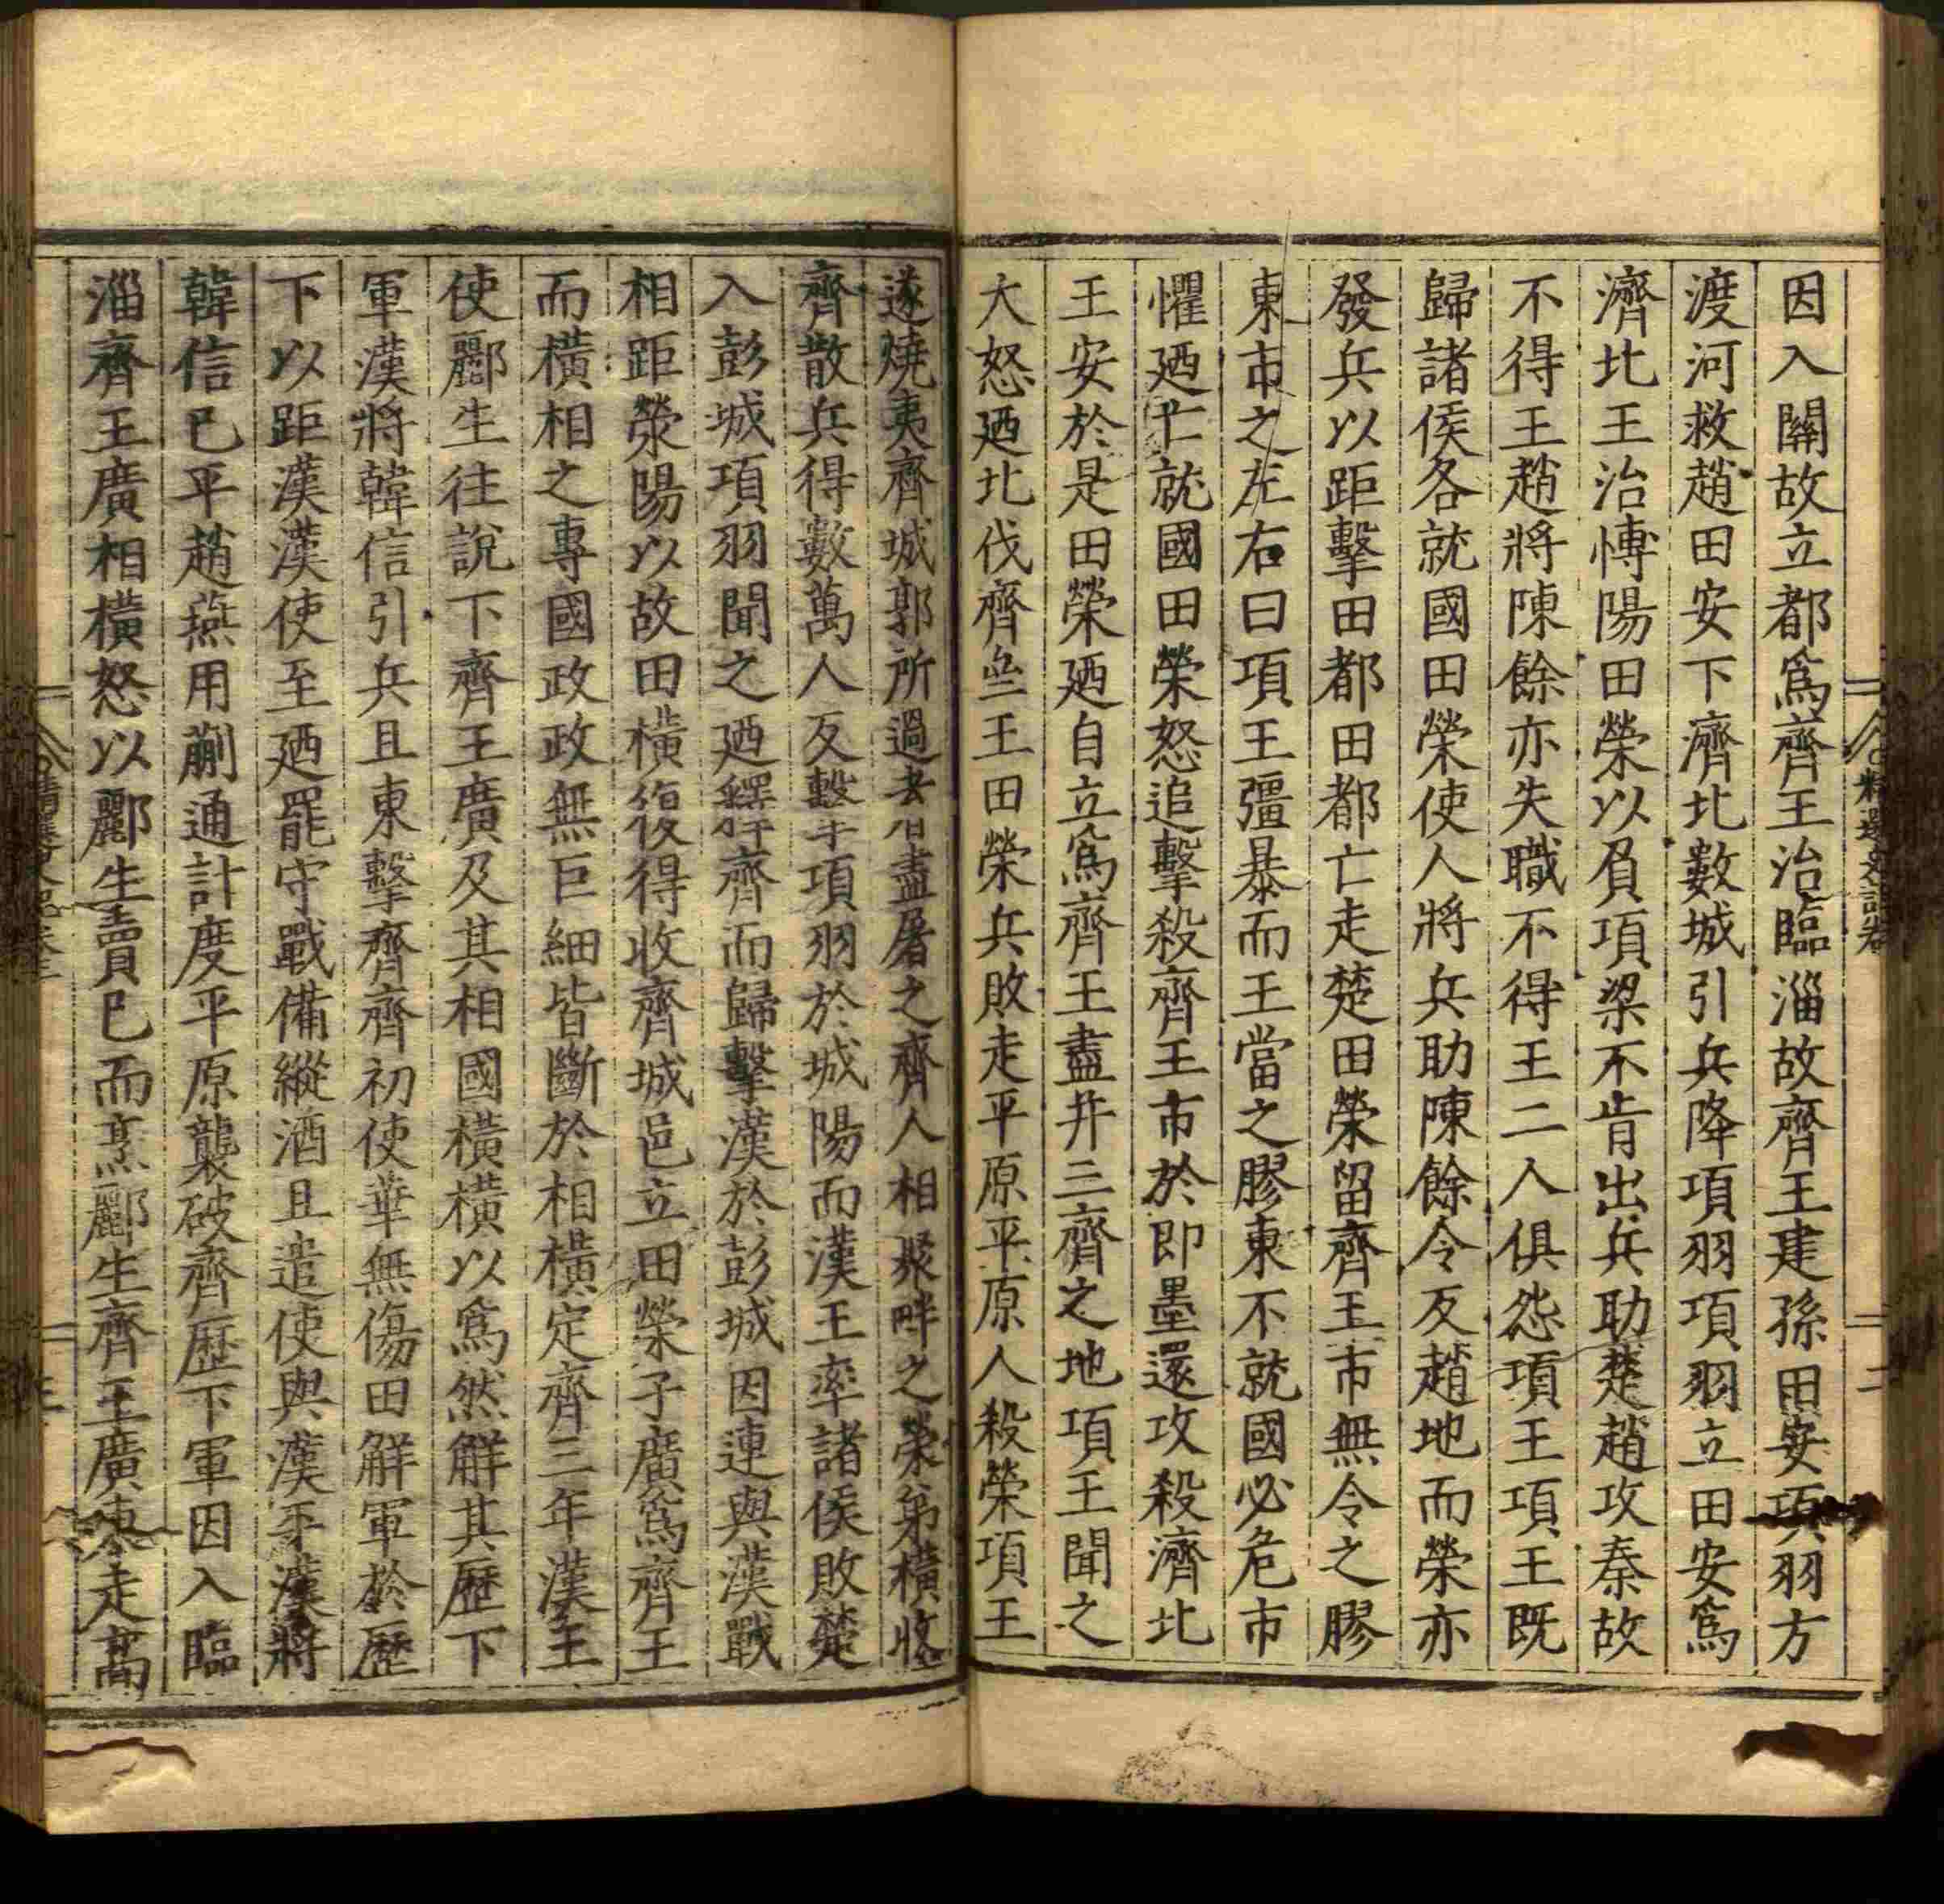 因入關故立都爲齊王治臨淄故齊王建孫田安項羽方
渡河救趙田安下濟北數城引兵降項羽項羽立田安爲
濟北王治博陽田榮以負項梁不肯出兵助楚趙攻秦故
不得王趙將陳餘亦失職不得王二人俱怨項王項王既
歸諸侯各就國田榮使人將兵助陳餘令反趙地而榮亦
發兵以距擊田都田都亡走楚田榮留齊王巿無令之膠
東巿之左右曰項王彊暴而王當之膠東不就國必危巿
懼廼亡就國田榮怒追擊殺齊王巿於即墨還攻殺濟北
王安於是田榮廼自立爲齊王盡并三齊之地項王聞之
大怒廼北伐齊王田榮兵敗走平原平原人殺榮項王
遂燒夷齊城郭所過者盡屠之齊人相聚畔之榮弟橫收
齊散兵得數萬人反擊項羽於城陽而漢王率諸侯敗楚
入彭城項羽聞之廼釋齊而歸擊漢於彭城因連與漢戰
相距滎陽以故田橫復得收齊城邑立田榮子廣爲齊王
而橫相之專國政政無巨細皆斷於相橫定齊三年漢王
使酈生往說下齊王廣及其相國橫橫以爲然解其歷下
軍漢將韓信引兵且東擊齊齊初使華無傷田解軍於歷
下以距漢漢使至廼罷守戰備縱酒且遣使與漢平漢將
韓信已平趙燕用蒯通計度平原襲破齊歷下軍因入臨
淄齊王廣相橫怒以酈生賣已而烹酈生齊王廣東走高